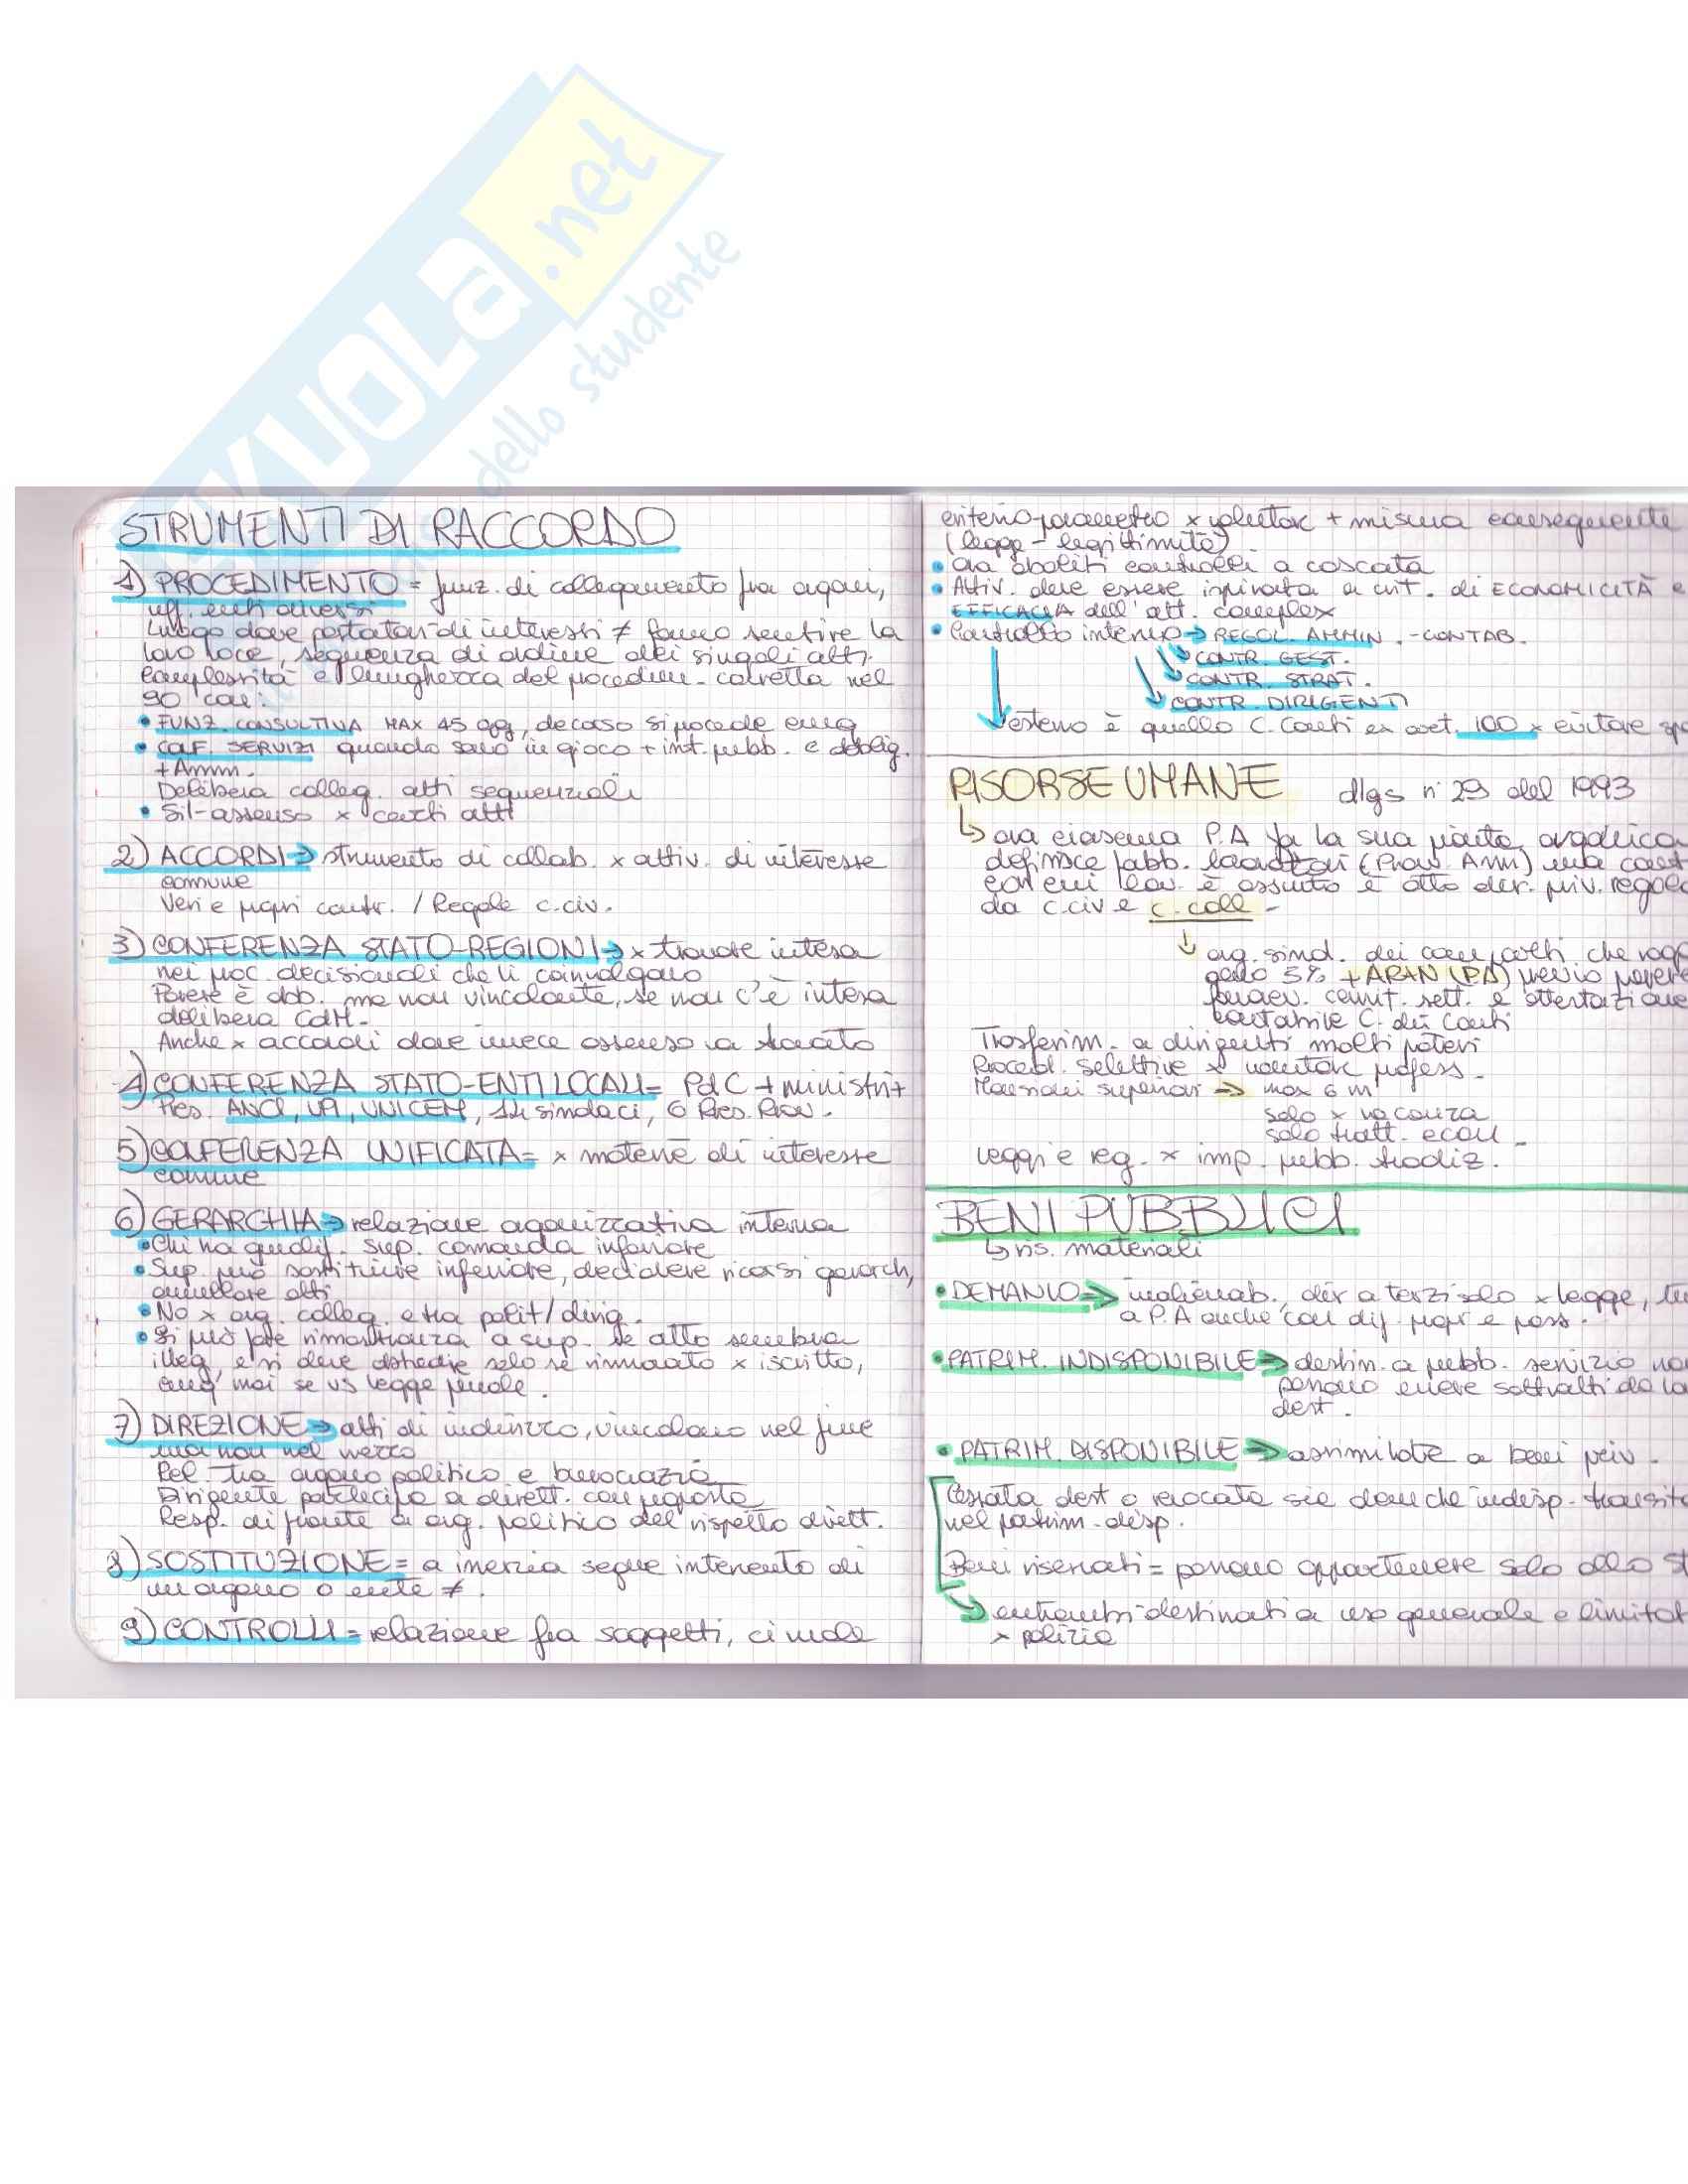 SKUOLA.net
dello studente
STRUMENTI DI RACCORDO
1) PROCEDIMENTO = funz. di collegamento fra organi,
uff. enti diversi
Luogo dove portatori di interessi ≠ fanno sentire la
loro voce, sequenza di ordine dei singoli atti.
Complessità e lunghezza del procedim. corretta nel
90 con:
• FUNZ. CONSULTIVA MAX 45 gg, decorso si procede cmq
• CONF. SERVIZI quando sono in gioco + int. pubb. e obblig.
+ Amm.
Delibera colleg. atti sequenziali
• Sil-assenso x certi atti
2) ACCORDI → strumento di collab. x attiv. di interesse
comune
Veri e propri contr. / Regole c.civ.
3) CONFERENZA STATO-REGIONI → x trovare intesa
nei proc. decisionali che li coinvolgano
Parere è obb. ma non vincolante, se non c'è intesa
delibera CdM.
Anche x accordi dove invece assenso va trovato
4) CONFERENZA STATO-ENTI LOCALI = PdC + ministri +
Pres. ANCI, UPI, UNICEM, 14 sindaci, 6 Pres. Prov.
5) CONFERENZA UNIFICATA = x materie di interesse
comune
6) GERARCHIA → relazione organizzativa interna
• Chi ha qualif. sup. comanda inferiore
• Sup. può sostituire inferiore, decidere ricorsi gerarch,
annullare atti
• No x org. colleg. e tra polit/dirig.
• Si può fare rimostranza a sup. se atto sembra
illeg, e si deve obbedire solo se rinnovato x iscritto,
cmq mai se vs legge penale.
7) DIREZIONE → atti di indirizzo, vincolano nel fine
ma non nel mezzo
Rel. tra organo politico e burocrazia
Dirigente partecipa a dirett. con proposta
Resp. di fronte a org. politico del rispetto dirett.
8) SOSTITUZIONE = a inerzia segue intervento di
un organo o ente ≠.
9) CONTROLLI = relazione fra soggetti, ci vuole
criterio-parametro x valutaz + misura conseguente
(legge - legittimità)
• Ora aboliti controlli a cascata
• Attiv. deve essere ispirata a crit. di ECONOMICITÀ e
EFFICACIA dell'att. compless
• Controllo interno → REGOL. AMMIN. - CONTAB.
CONTR. GEST.
CONTR. STRAT.
CONTR. DIRIGENTI
esterno è quello C. Conti ex art. 100 x evitare
RISORSE UMANE dlgs n° 29 del 1993
ora ciascuna P.A fa la sua pianta organica
definisce fabb. lavoratori (Provv. Amm) ma
con cui lav. è assunto è atto dir. priv.
da c.civ e c. coll -
org. sind. dei comparti che
5% + ARAN (PA) previo
comit. sett. e
C. dei Conti
Trasferim. a dirigenti molti poteri
Proced. selettive x valutaz profess.
Mansioni superiori → max 6 m
solo x vacanza
solo tratt. econ
Leggi e reg. x imp. pubb. tradiz.
BENI PUBBLICI
ris. materiali
• DEMANIO → inalienab., dir a terzi solo x legge,
a P.A anche con dif. propr e poss.
• PATRIM. INDISPONIBILE → destin. a pubb. servizio
possono essere sottratti da
dest.
• PATRIM. DISPONIBILE → assimilate a beni priv.
Cessata dest o revocata sia dem che indisp.
nel patrim. disp.
Beni riservati = possono appartenere solo allo
entrambi destinati a uso generale e
x polizia